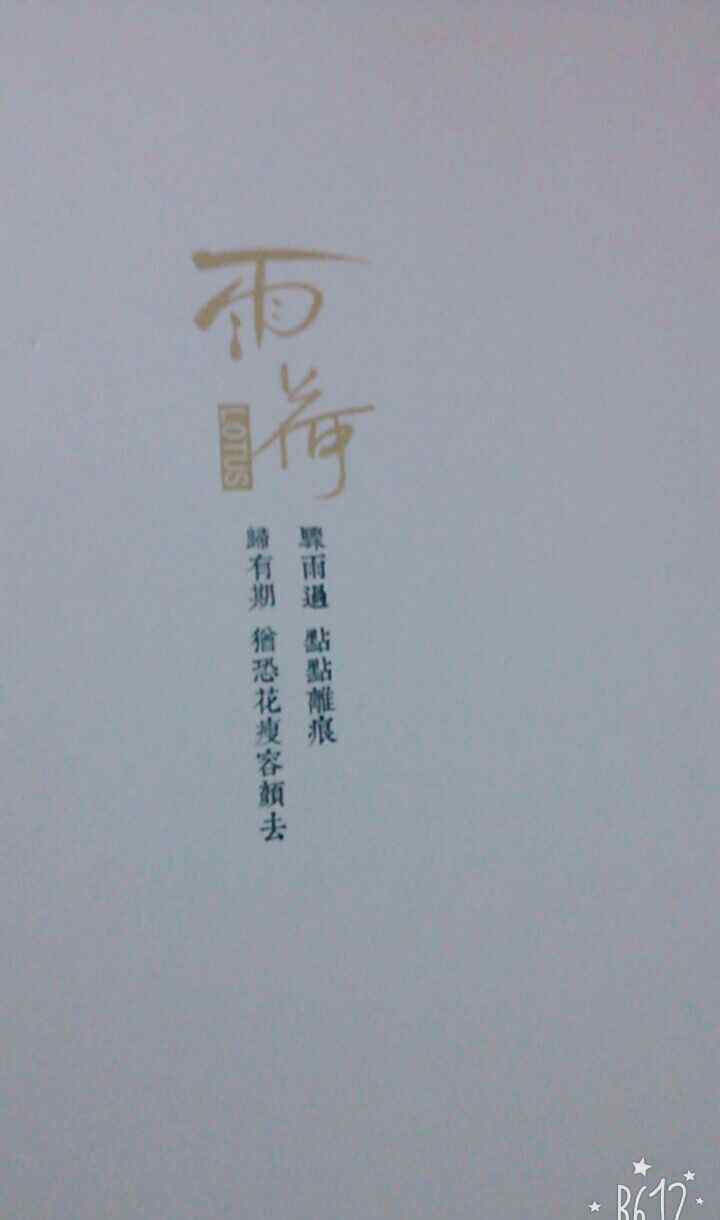 雨荷
LOTUS
驟雨過 點點離痕
歸有期 猶恐花瘦容顏去
B612